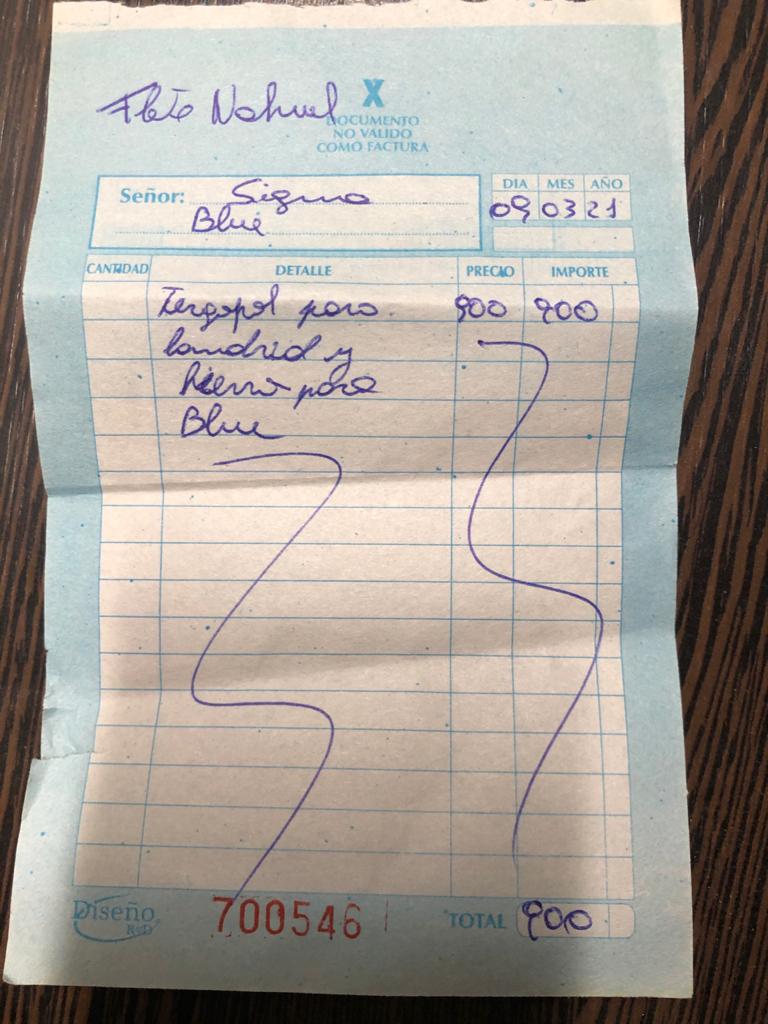 Flete Nahuel
X
DOCUMENTO
NO VALIDO
COMO FACTURA
Señor: Sigma
Blue
DIA MES AÑO
09 03 21
CANTIDAD DETALLE PRECIO IMPORTE
Tergopol para 900 900
landrid y
hierro para
Blue
Diseño
R&D
700546
TOTAL 900